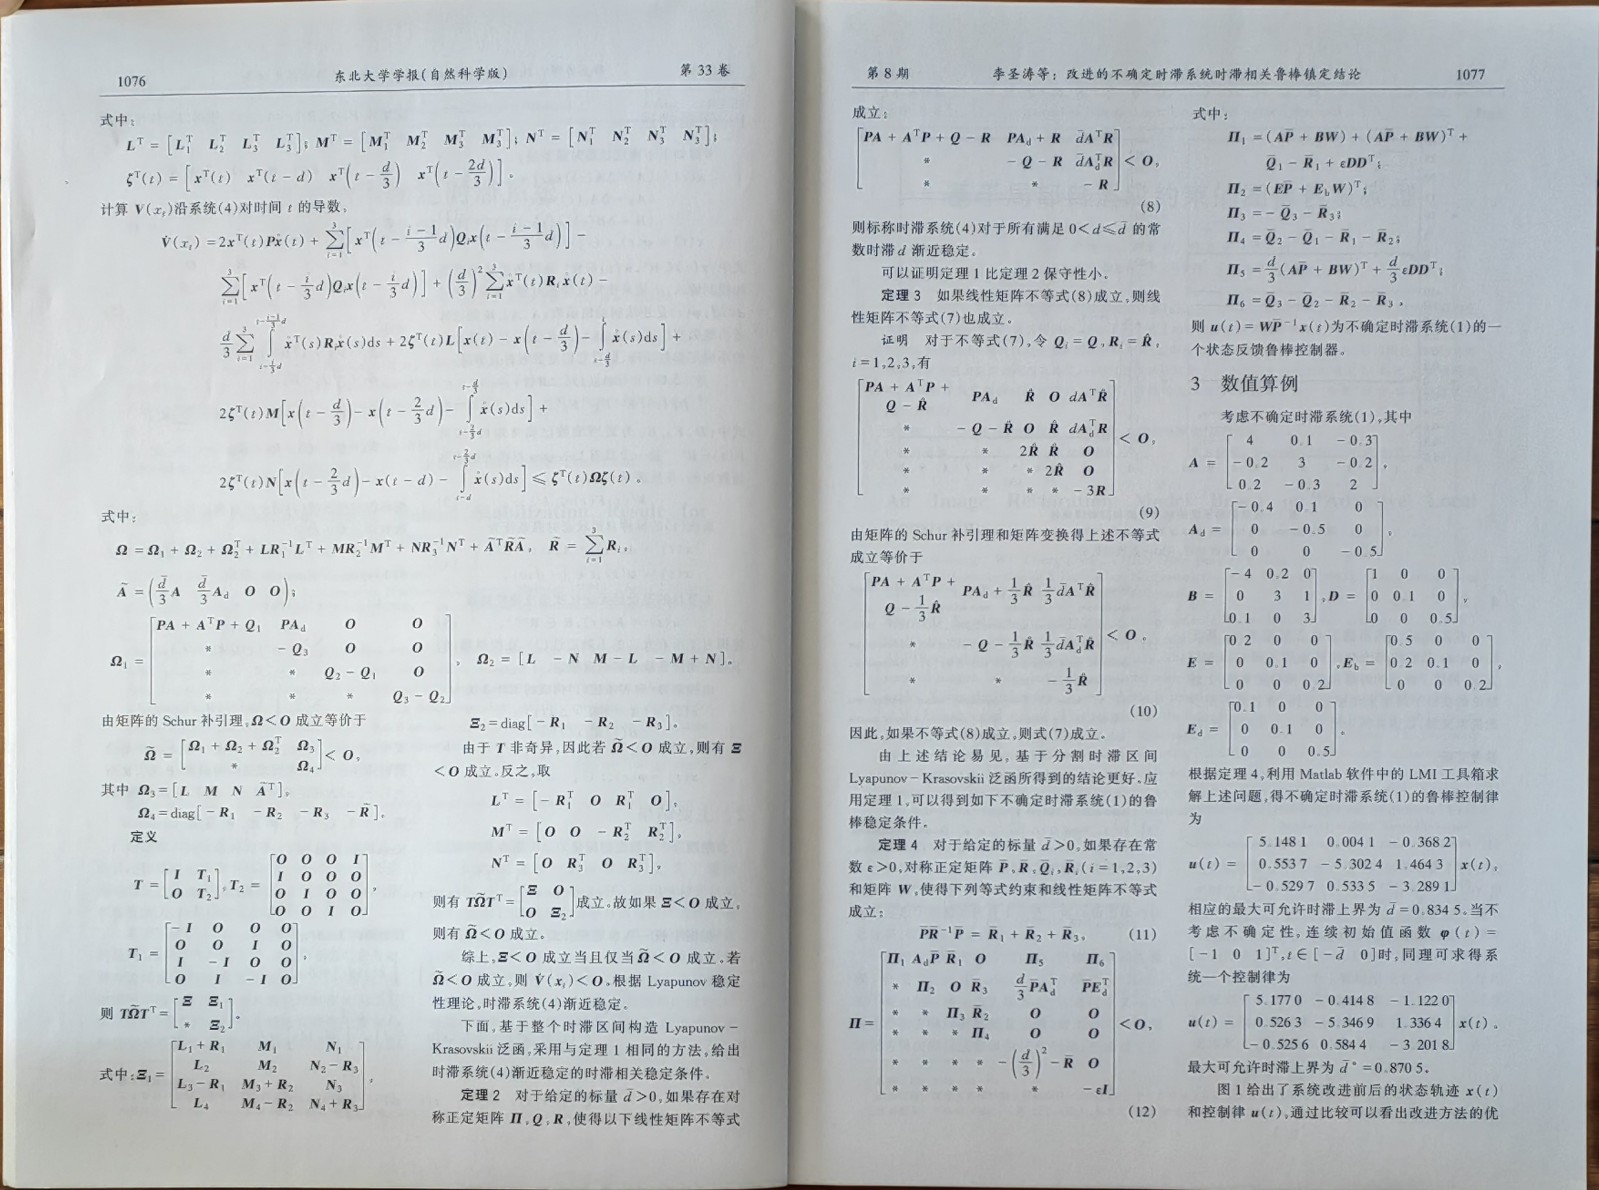 1076
东北大学学报(自然科学版)
第 33 卷
式中:
L^T = [L_1^T L_2^T L_3^T L_3^T]; M^T = [M_1^T M_2^T M_3^T M_3^T]; N^T = [N_1^T N_2^T N_3^T N_3^T];
ζ^T(t) = [x^T(t) x^T(t-d) x^T(t-d/3) x^T(t-2d/3)]。
计算 V(x_t)沿系统(4)对时间 t 的导数,
V̇(x_t) = 2x^T(t)Pẋ(t) + ∑_{i=1}^{3}[x^T(t-(i-1)/3 d)Q_i x(t-(i-1)/3 d)] -
∑_{i=1}^{3}[x^T(t-i/3 d)Q_i x(t-i/3 d)] + (d/3)^2 ∑_{i=1}^{3} ẋ^T(t)R_i ẋ(t) -
d/3 ∑_{i=1}^{3} ∫_{t-i/3 d}^{t-(i-1)/3 d} ẋ^T(s)R_i ẋ(s)ds + 2ζ^T(t)L[x(t) - x(t-d/3) - ∫_{t-d/3}^{t} ẋ(s)ds] +
2ζ^T(t)M[x(t-d/3) - x(t-2/3 d) - ∫_{t-2/3 d}^{t-d/3} ẋ(s)ds] +
2ζ^T(t)N[x(t-2/3 d) - x(t-d) - ∫_{t-d}^{t-2/3 d} ẋ(s)ds] ≤ ζ^T(t)Ωζ(t)。
式中:
Ω = Ω_1 + Ω_2 + Ω_2^T + LR_1^{-1}L^T + MR_2^{-1}M^T + NR_3^{-1}N^T + Ã^T R̃ Ã, R̃ = ∑_{i=1}^{3} R_i,
Ã = (d̄/3 A d̄/3 A_d O O);
Ω_1 = [PA + A^TP + Q_1 PA_d O O
* -Q_3 O O
* * Q_2 - Q_1 O
* * * Q_3 - Q_2], Ω_2 = [L -N M-L -M+N]。
由矩阵的 Schur 补引理,Ω<O 成立等价于
Ω̃ = [Ω_1 + Ω_2 + Ω_2^T Ω_3
* Ω_4] < O,
其中 Ω_3 = [L M N Ã^T],
Ω_4 = diag[-R_1 -R_2 -R_3 -R̃]。
定义
T = [I T_1
O T_2], T_2 = [O O O I
I O O O
O I O O
O O I O],
T_1 = [-I O O O
O O I O
I -I O O
O I -I O],
则 TΩ̃T^T = [Ξ Ξ_1
* Ξ_2]。
式中:Ξ_1 = [L_1 + R_1 M_1 N_1
L_2 M_2 N_2 - R_3
L_3 - R_1 M_3 + R_2 N_3
L_4 M_4 - R_2 N_4 + R_3],
Ξ_2 = diag[-R_1 -R_2 -R_3]。
由于 T 非奇异,因此若 Ω̃<O 成立,则有 Ξ
<O 成立。反之,取
L^T = [-R_1^T O R_1^T O],
M^T = [O O -R_2^T R_2^T],
N^T = [O R_3^T O R_3^T],
则有 TΩ̃T^T = [Ξ O
O Ξ_2]成立。故如果 Ξ<O 成立,
则有 Ω̃<O 成立。
综上,Ξ<O 成立当且仅当 Ω̃<O 成立。若
Ω̃<O 成立,则 V̇(x_t)<O。根据 Lyapunov 稳定
性理论,时滞系统(4)渐近稳定。
下面,基于整个时滞区间构造 Lyapunov-
Krasovskii 泛函,采用与定理 1 相同的方法,给出
时滞系统(4)渐近稳定的时滞相关稳定条件。
定理 2 对于给定的标量 d̄>0,如果存在对
称正定矩阵 Π,Q,R,使得以下线性矩阵不等式
第 8 期
李圣涛等: 改进的不确定时滞系统时滞相关鲁棒镇定结论
1077
成立:
[PA + A^TP + Q - R PA_d + R d̄A^TR
* -Q - R d̄A_d^TR
* * -R] < O,
(8)
则标称时滞系统(4)对于所有满足 0<d≤d̄ 的常
数时滞 d 渐近稳定。
可以证明定理 1 比定理 2 保守性小。
定理 3 如果线性矩阵不等式(8)成立,则线
性矩阵不等式(7)也成立。
证明 对于不等式(7),令 Q_i = Q, R_i = R̂,
i = 1,2,3,有
[PA + A^TP + Q - R̂ PA_d R̂ O dA^TR̂
* -Q - R̂ O R̂ dA_d^TR
* * 2R̂ R̂ O
* * * 2R̂ O
* * * * -3R] < O,
(9)
由矩阵的 Schur 补引理和矩阵变换得上述不等式
成立等价于
[PA + A^TP + Q - 1/3 R̂ PA_d + 1/3 R̂ 1/3 d̄A^TR̂
* -Q - 1/3 R̂ 1/3 d̄A_d^TR̂
* * -1/3 R̂] < O。
(10)
因此,如果不等式(8)成立,则式(7)成立。
由上述结论易见,基于分割时滞区间
Lyapunov-Krasovskii 泛函所得到的结论更好。应
用定理 1,可以得到如下不确定时滞系统(1)的鲁
棒稳定条件。
定理 4 对于给定的标量 d̄>0,如果存在常
数 ε>0,对称正定矩阵 P̄,R̄,Q̄_i,R̄_i(i=1,2,3)
和矩阵 W,使得下列等式约束和线性矩阵不等式
成立:
P̄R^{-1}P̄ = R̄_1 + R̄_2 + R̄_3, (11)
Π = [Π_1 A_dP̄ R̄_1 O Π_5 Π_6
* Π_2 O R̄_3 d̄/3 P̄A_d^T P̄E_d^T
* * Π_3 R̄_2 O O
* * * Π_4 O O
* * * * -(d̄/3)^2 - R̄ O
* * * * * -εI] < O,
(12)
式中:
Π_1 = (AP̄ + BW) + (AP̄ + BW)^T +
Q̄_1 - R̄_1 + εDD^T;
Π_2 = (EP̄ + E_bW)^T;
Π_3 = -Q̄_3 - R̄_3;
Π_4 = Q̄_2 - Q̄_1 - R̄_1 - R̄_2;
Π_5 = d̄/3 (AP̄ + BW)^T + d̄/3 εDD^T;
Π_6 = Q̄_3 - Q̄_2 - R̄_2 - R̄_3。
则 u(t) = WP̄^{-1}x(t)为不确定时滞系统(1)的一
个状态反馈鲁棒控制器。
3 数值算例
考虑不确定时滞系统(1),其中
A = [4 0.1 -0.3
-0.2 3 -0.2
0.2 -0.3 2],
A_d = [-0.4 0.1 0
0 -0.5 0
0 0 -0.5],
B = [-4 0.2 0
0 3 1
0.1 0 3], D = [1 0 0
0 0.1 0
0 0 0.5],
E = [0.2 0 0
0 0.1 0
0 0 0.2], E_b = [0.5 0 0
0.2 0.1 0
0 0 0.2],
E_d = [0.1 0 0
0 0.1 0
0 0 0.5]。
根据定理 4,利用 Matlab 软件中的 LMI 工具箱求
解上述问题,得不确定时滞系统(1)的鲁棒控制律
为
u(t) = [5.148 1 0.004 1 -0.368 2
0.553 7 -5.302 4 1.464 3
-0.529 7 0.533 5 -3.289 1] x(t),
相应的最大可允许时滞上界为 d̄=0.834 5。当不
考虑不确定性,连续初始值函数 φ(t) =
[-1 0 1]^T,t∈[-d̄ 0]时,同理可求得系
统一个控制律为
u(t) = [5.177 0 -0.414 8 -1.122 0
0.526 3 -5.346 9 1.336 4
-0.525 6 0.584 4 -3.201 8] x(t)。
最大可允许时滞上界为 d̄*=0.870 5。
图 1 给出了系统改进前后的状态轨迹 x(t)
和控制律 u(t),通过比较可以看出改进方法的优